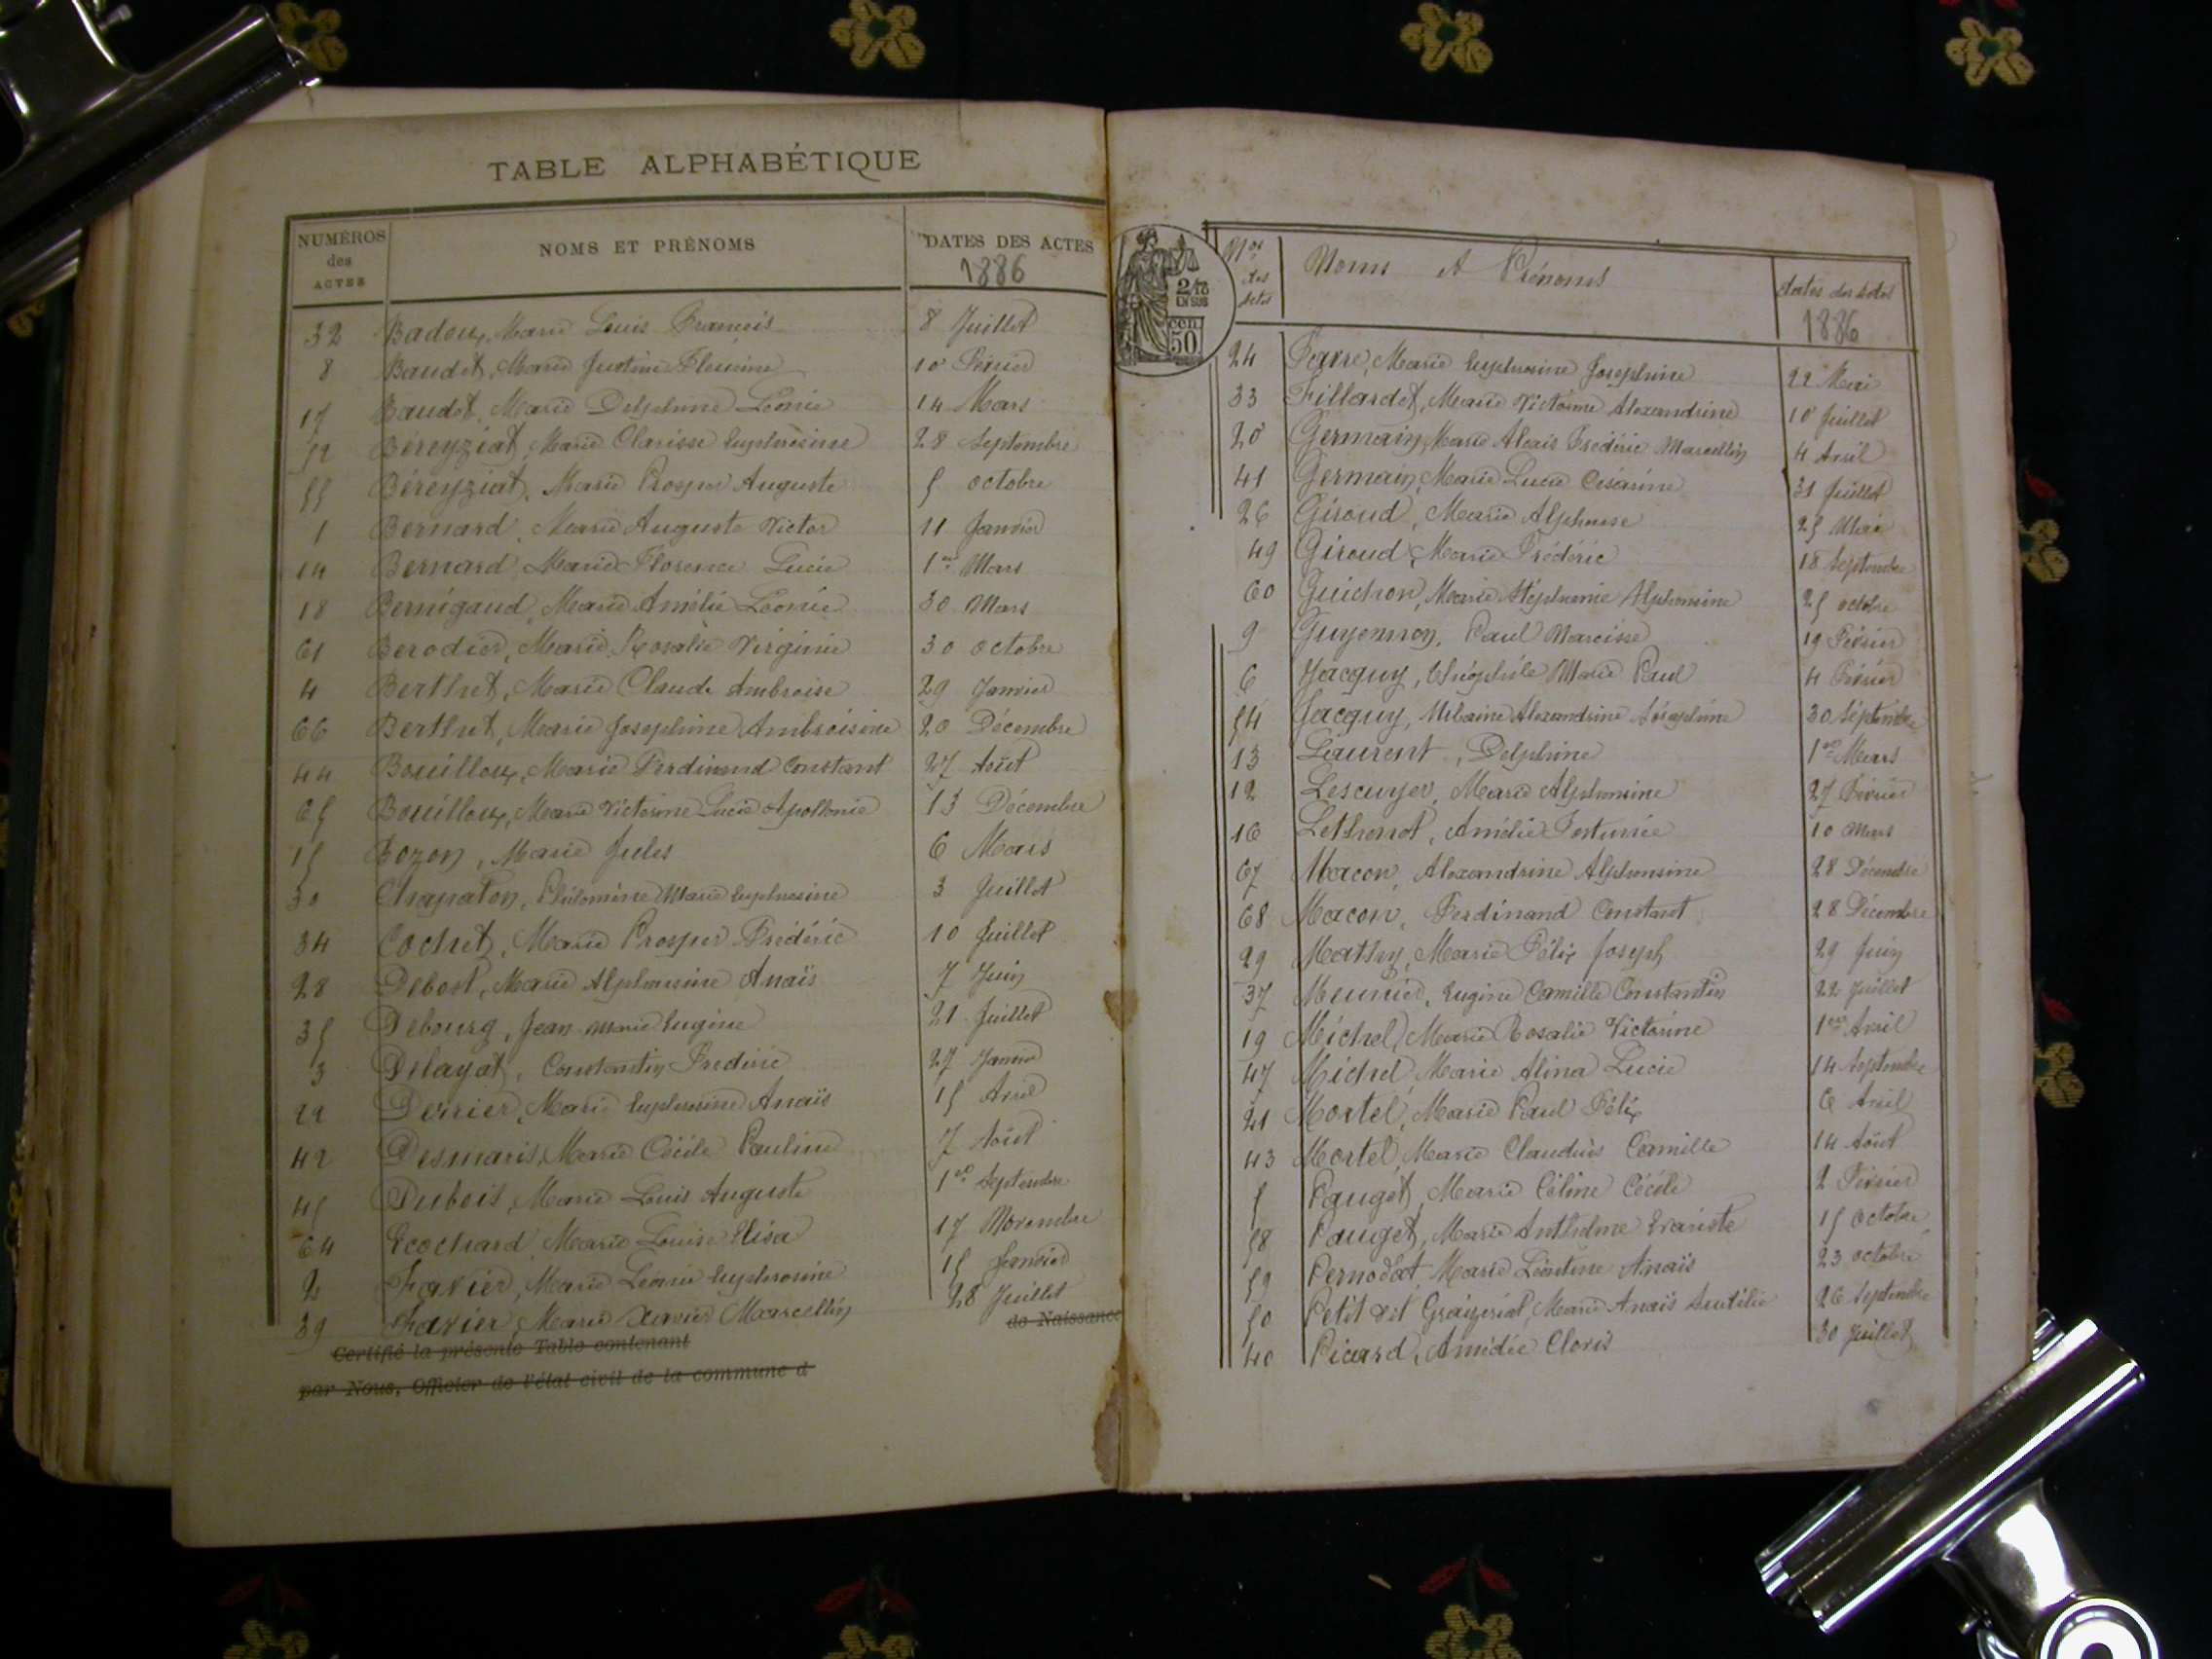 TABLE ALPHABÉTIQUE
NUMÉROS des ACTES NOMS ET PRÉNOMS DATES DES ACTES
1886
32 Badoux, Marie Louis François 8 Juillet
8 Baudet, Marie Justine Fleurine 10 Février
17 Baudet, Marie Delphine Léonie 14 Mars
52 Béreyziat, Marie Clarisse Euphrosine 28 Septembre
55 Béreyziat, Marie Prosper Auguste 5 octobre
1 Bernard, Marie Auguste Victor 11 Janvier
14 Bernard, Marie Florence Lucie 1er Mars
18 Bernigaud, Marie Amélie Léonie 30 Mars
61 Berodier, Marie Rosalie Virginie 30 octobre
4 Berthet, Marie Claude Ambroise 29 Janvier
66 Berthet, Marie Josephine Ambroisine 20 Décembre
44 Bouilloux, Marie Ferdinand Constant 27 Août
65 Bouilloux, Marie Victorine Lucie Apollonie 13 Décembre
15 Bozon, Marie Jules 6 Mars
30 Chapaton, Philomène Marie Euphrosine 3 Juillet
34 Cochet, Marie Prosper Frédéric 10 Juillet
28 Debost, Marie Alphonsine Anaïs 7 Juin
35 Debourg, Jean Marie Eugène 21 Juillet
3 Delayat, Constantin Frederic 27 Janvier
22 Derrier, Marie Euphrosine Anaïs 15 Avril
42 Desmaris, Marie Cécile Pauline 7 Août
45 Dubois, Marie Louis Auguste 1er Septembre
64 Ecochard, Marie Louise Elisa 17 Novembre
2 Favier, Marie Léonie Euphrosine 15 Janvier
39 Favier, Marie Xavier Marcellin 28 Juillet
Certifié la présente Table contenant de Naissance
par Nous, Officier de l'état civil de la commune d
2/10 EN SUS
50 cen.
Nos des Actes Noms et Prénoms dates des actes
1886
24 Favre, Marie Euphrosine Josephine 22 Mai
33 Fillardet, Marie Victorine Alexandrine 10 Juillet
20 Germain, Marie Alexis Frédéric Marcellin 4 Avril
41 Germain, Marie Lucie Césarine 31 Juillet
26 Giroud, Marie Alphonse 25 Mai
49 Giroud, Marie Frédéric 18 Septembre
60 Guichon, Marie Stéphanie Alphonsine 25 octobre
9 Guyennon, Paul Narcisse 19 Février
6 Jacquy, Théophile Marie Paul 4 Février
54 Jacquy, Urbaine Alexandrine Séraphine 30 Septembre
13 Laurent, Delphine 1er Mars
12 Lescuyer, Marie Alphonsine 27 Février
16 Lethenot, Amélie Fortunée 10 Mars
67 Macon, Alexandrine Alphonsine 28 Décembre
68 Macon, Ferdinand Constant 28 Décembre
29 Mathy, Marie Félix Joseph 29 Juin
37 Meunier, Eugène Camille Constantin 22 Juillet
19 Michel, Marie Rosalie Victorine 1er Avril
47 Michel, Marie Alina Lucie 14 Septembre
21 Mortel, Marie Paul Félix 6 Avril
43 Mortel, Marie Claudius Camille 14 Août
5 Pauget, Marie Céline Cécile 2 Février
58 Pauget, Marie Anthelme Evariste 15 Octobre
59 Pernodat, Marie Léontine Anaïs 23 octobre
50 Petit dit Marie Anaïs 26 Septembre
40 Picard, Amédée Cloris 30 Juillet